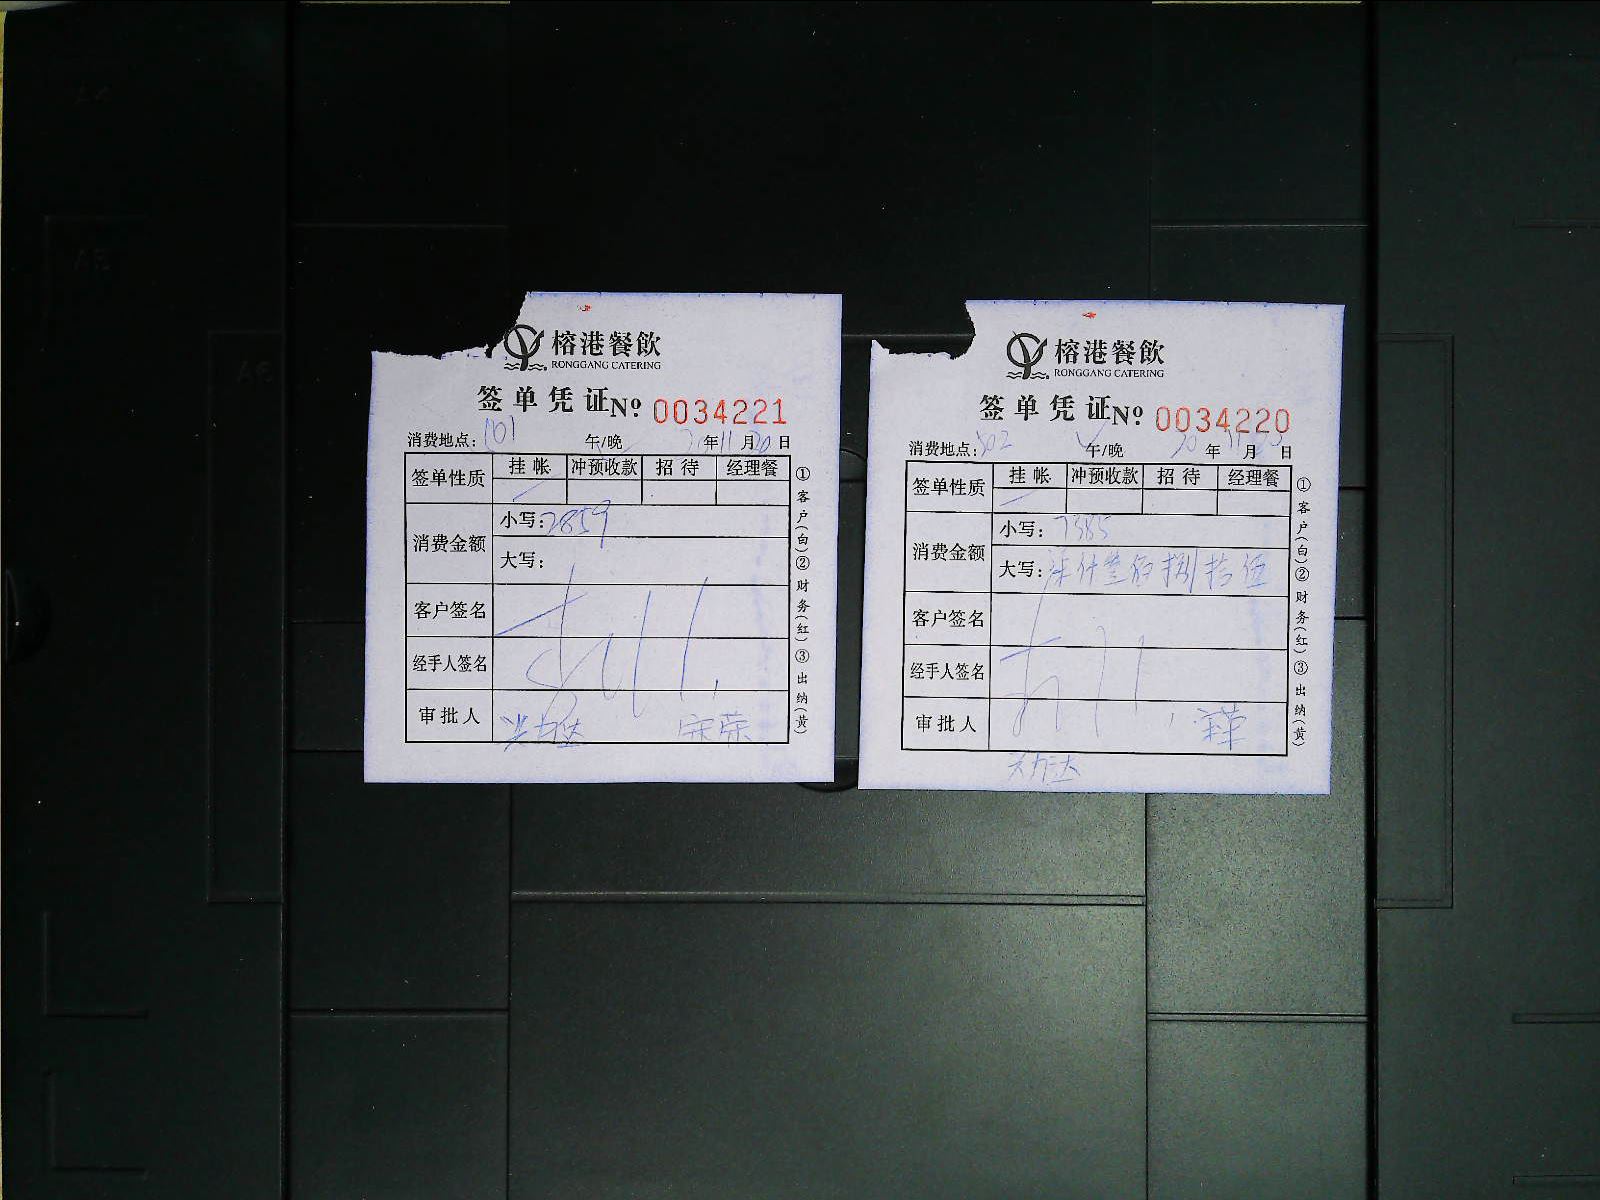 榕港餐飲
RONGGANG CATERING
签单凭证№ 0034221
消费地点：101 午/晚 年11月20日
签单性质 挂帐 冲预收款 招待 经理餐
消费金额 小写：2859
大写：
客户签名
经手人签名
审批人
①客户(白)②财务(红)③出纳(黄)
榕港餐飲
RONGGANG CATERING
签单凭证№ 0034220
消费地点：302 午/晚 20年11月日
签单性质 挂帐 冲预收款 招待 经理餐
消费金额 小写：7385
大写：柒仟叁佰捌拾伍
客户签名
经手人签名
审批人
①客户(白)②财务(红)③出纳(黄)